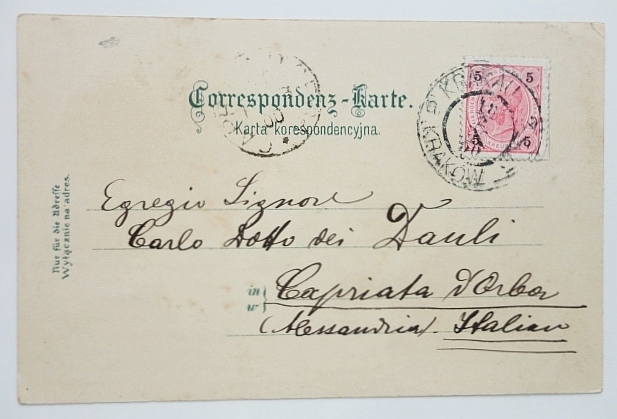 Correspondenz-Karte.
Karta korespondencyjna.
5 5
5
KRAKAU
KRAKÓW
Nur für die Adresse
Wyłącznie na adres.
Egregio Signore
Carlo Dotto dei Dauli
in
w
Capriata d'Orba
(Alessandria). Italien